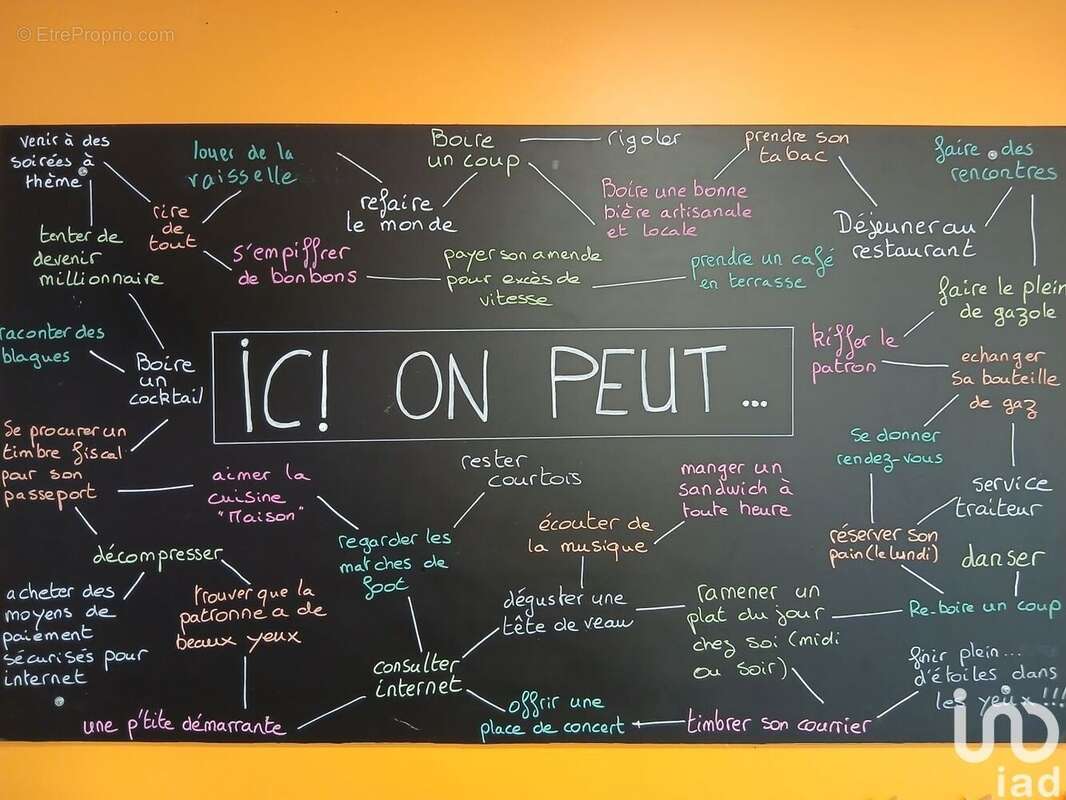 © EtreProprio.com
venir à des
soirées à
thème
louer de la
vaisselle
Boire
un coup
rigoler
prendre son
tabac
faire des
rencontres
rire
de
tout
refaire
le monde
Boire une bonne
bière artisanale
et locale
Déjeuner au
restaurant
tenter de
devenir
millionnaire
s'empiffrer
de bonbons
payer son amende
pour excès de
vitesse
prendre un café
en terrasse
faire le plein
de gazole
raconter des
blagues
Boire
un
cocktail
ici! ON PEUT...
kiffer le
patron
echanger
sa bouteille
de gaz
se procurer un
timbre fiscal
pour son
passeport
aimer la
cuisine
"Maison"
rester
courtois
manger un
sandwich à
toute heure
se donner
rendez-vous
service
traiteur
décompresser
regarder les
matches de
foot
écouter de
la musique
réserver son
pain (le lundi)
danser
acheter des
moyens de
paiement
sécurisés pour
internet
trouver que la
patronne a de
beaux yeux
déguster une
tête de veau
ramener un
plat du jour
chez soi (midi
ou soir)
Re-boire un coup
consulter
internet
finir plein...
d'étoiles dans
les yeux !!!
une p'tite démarrante
offrir une
place de concert
timbrer son courrier
iad